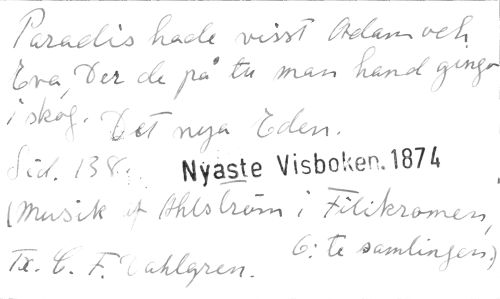 Paradis hade visst Adam och
Eva, Der de på tu man hand gingo
i skog. Det nya Eden.
Sid. 138. Nyaste Visboken. 1874
(Musik af Ahlström i Filikromen,
6: te samlingen.)
Tx. C. F. Dahlgren.